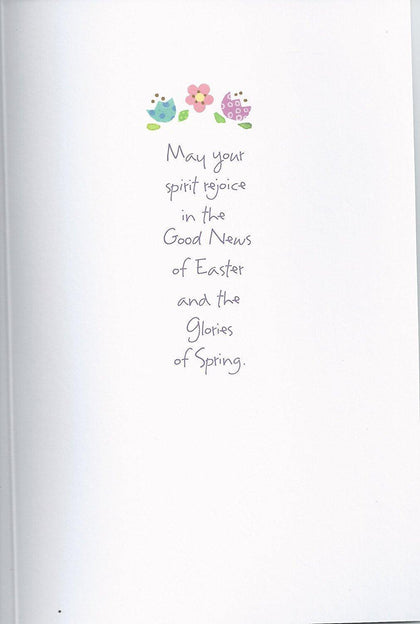 May your
spirit rejoice
in the
Good News
of Easter
and the
Glories
of Spring.